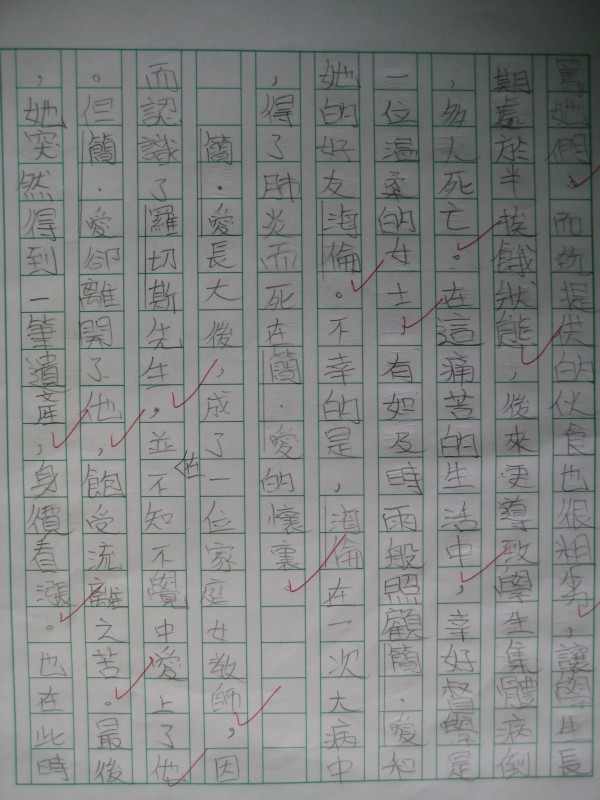 罵她們，而所提供的伙食也很粗劣，讓學生長
期處於半挨餓狀態，後來更導致學生集體病倒
，多人死亡。在這痛苦的生活中，幸好督學是
一位溫柔的女士，有如及時雨般照顧簡．愛和
她的好友海倫。不幸的是，海倫在一次大病中
，得了肺炎而死在簡．愛的懷裏。
簡．愛長大後，成了一位家庭女教師，因
而認識了羅切斯先生，並在不知不覺中愛上了他
。但簡．愛卻離開了他，飽受流離之苦。最後
，她突然得到一筆遺產，身價看漲。也在此時